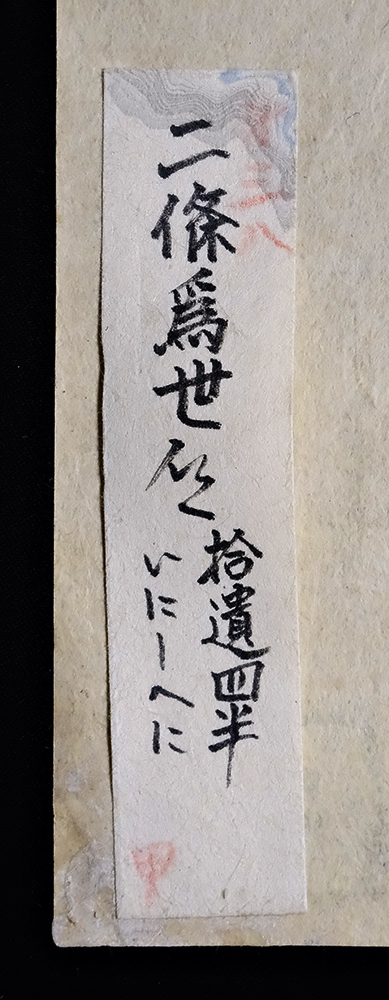 二條爲世卿
拾遺四半
いにしへに
甲